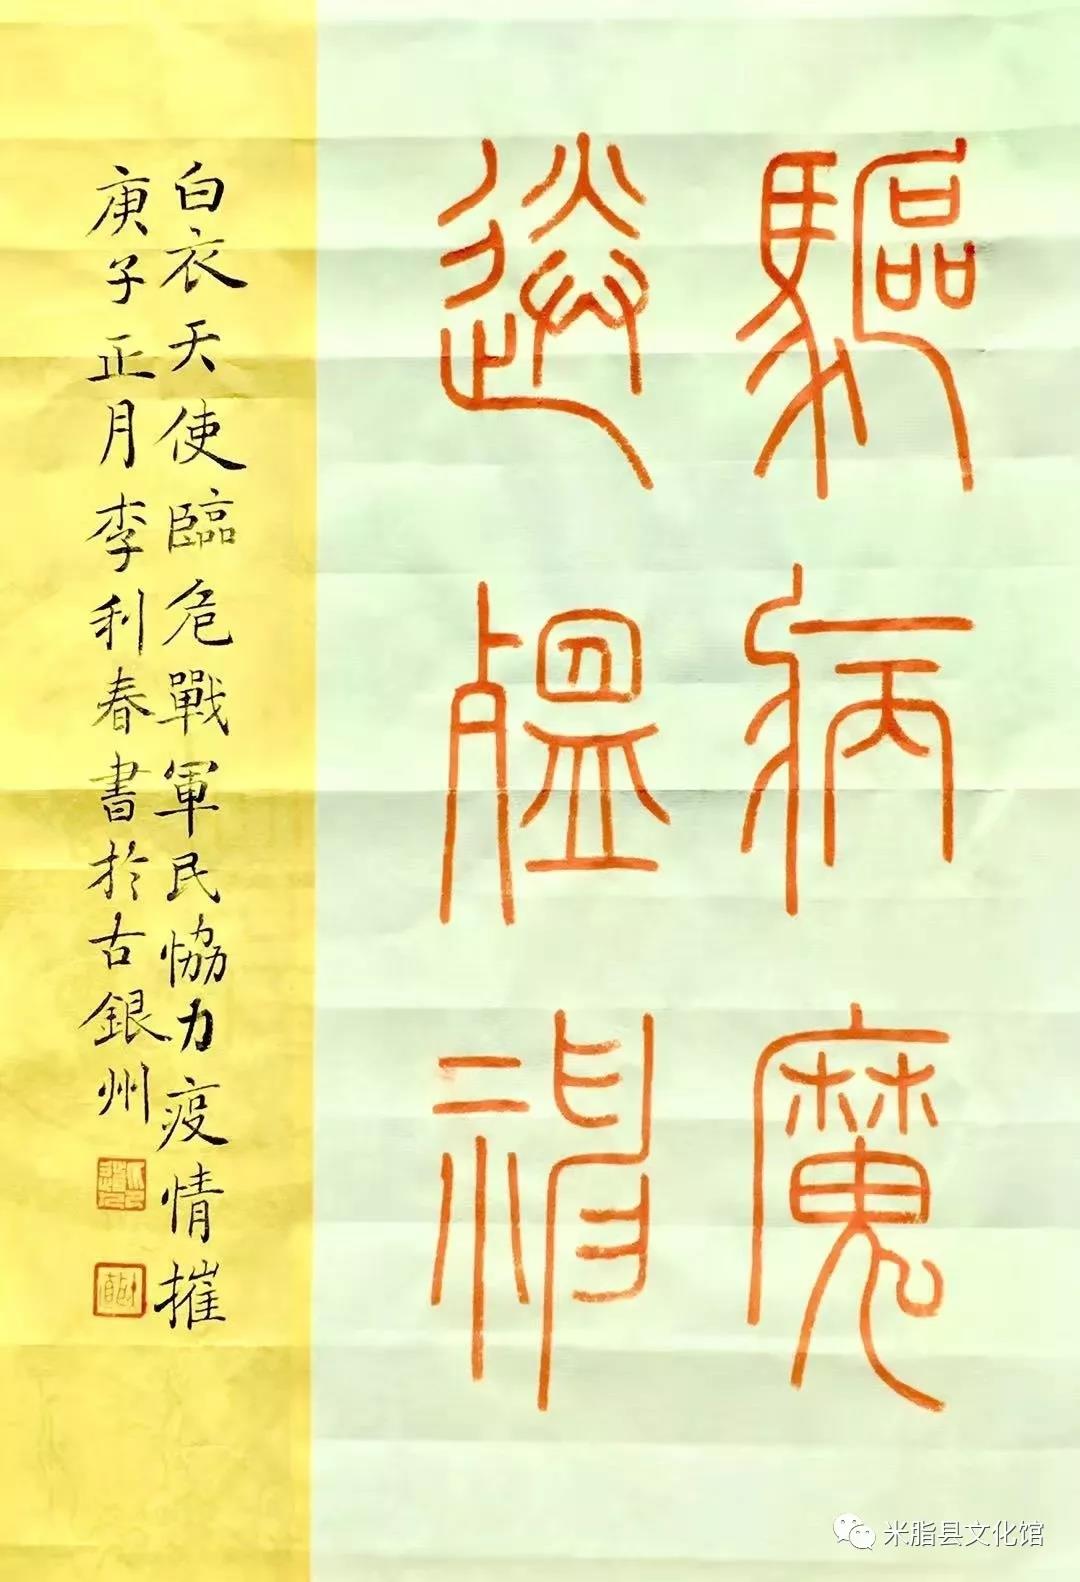 驅病魔
送殟神
白衣天使臨危戰軍民恊力疫情摧
庚子正月李利春書於古銀州
米脂县文化馆